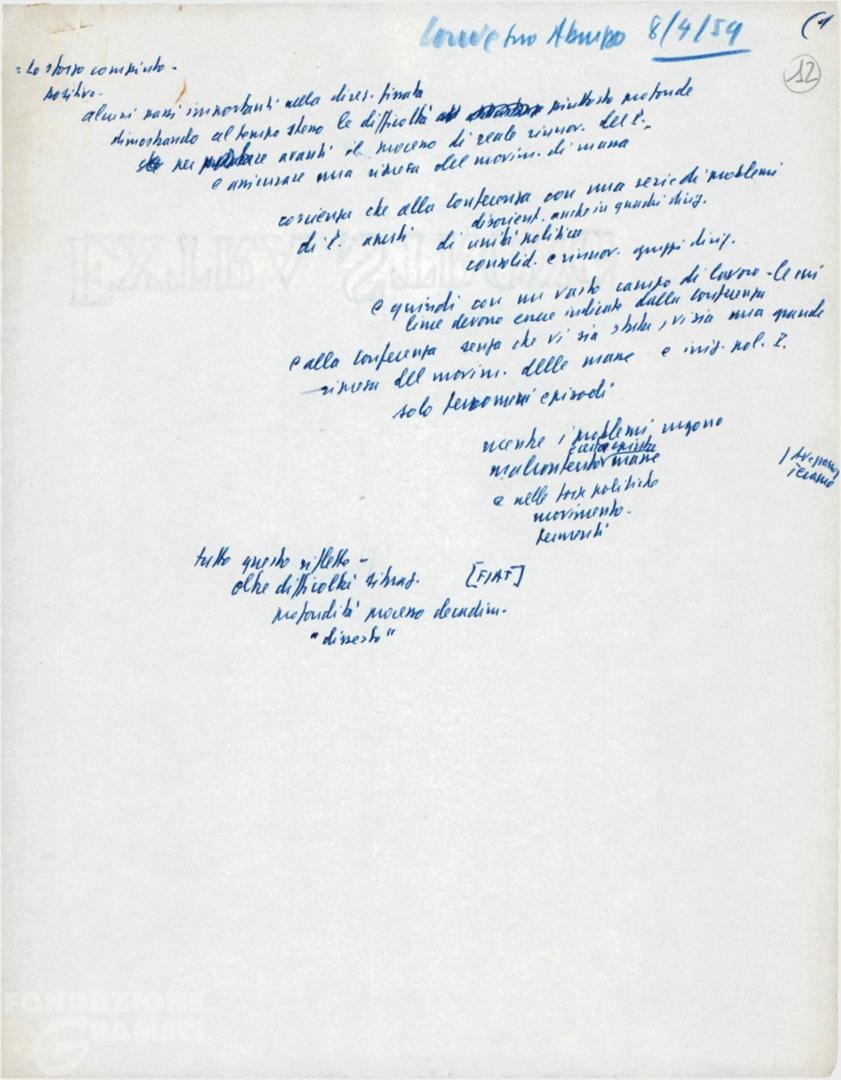 Abruzzo 8/4/54
(1
12
= Lo sforzo compiuto -
positivo -
alcuni passi importanti nella direz. fissata
dimostrando al tempo stesso le difficoltà piuttosto profonde
per portare avanti il processo di reale rinnov. del P.
e assicurare una ripresa del movim. di massa
coscienza che alla Conferenza con una serie di problemi
disorient. anche in quadri dirig.
di P. aperti di unità politica
consolid. e rinnov. gruppi dirig.
e quindi con un vasto campo di lavoro - le cui
linee devono essere indicate dalla conferenza
e alla Conferenza senza che vi sia stata, vi sia una grande
ripresa del movim. delle masse e iniz. pol. P.
solo fenomeni episodi
mentre i problemi urgono
malcontento masse
e nelle forze politiche
movimento -
fermenti
tutto questo riflette -
oltre difficoltà situaz. [FIAT]
profondità processo decadim.
"dissesto"
EXTRA STRONG
FONDAZIONE
GRAMSCI